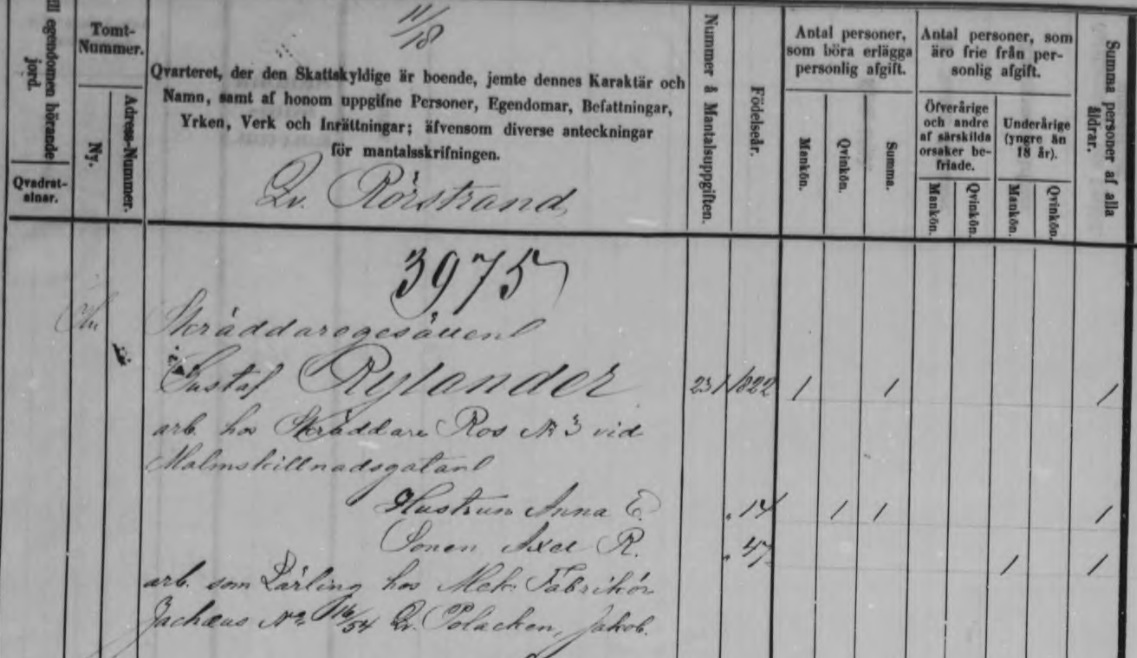 11/18
ill egendomen hörande jord.
Qvadrat-alnar.
Tomt-Nummer.
Ny.
Adress-Nummer.
Qvarteret, der den Skattskyldige är boende, jemte dennes Karaktär och
Namn, samt af honom uppgifne Personer, Egendomar, Befattningar,
Yrken, Verk och Inrättningar; äfvensom diverse anteckningar
för mantalsskrifningen.
Qv. Rörstrand
Nummer å Mantalsuppgiften.
Födelseår.
Antal personer, som böra erlägga personlig afgift.
Mankön.
Qvinkön.
Summa.
Antal personer, som äro frie från personlig afgift.
Öfverårige och andre af särskilda orsaker befriade.
Mankön.
Qvinkön.
Underårige (yngre än 18 år).
Mankön.
Qvinkön.
Summa personer af alla åldrar.
3975
Skräddaregesällen
Gustaf Rylander 231 1822 1 1 1
arb. hos Skräddare Ros No 3 vid
Malmskillnadsgatan
Hustrun Anna E. " 14 1 1 1
Sonen Axel R. " 47 1 1
arb. som Lärling hos Mek. Fabrikör
Zachæus No 16/54 Qv. Polacken, Jakob.